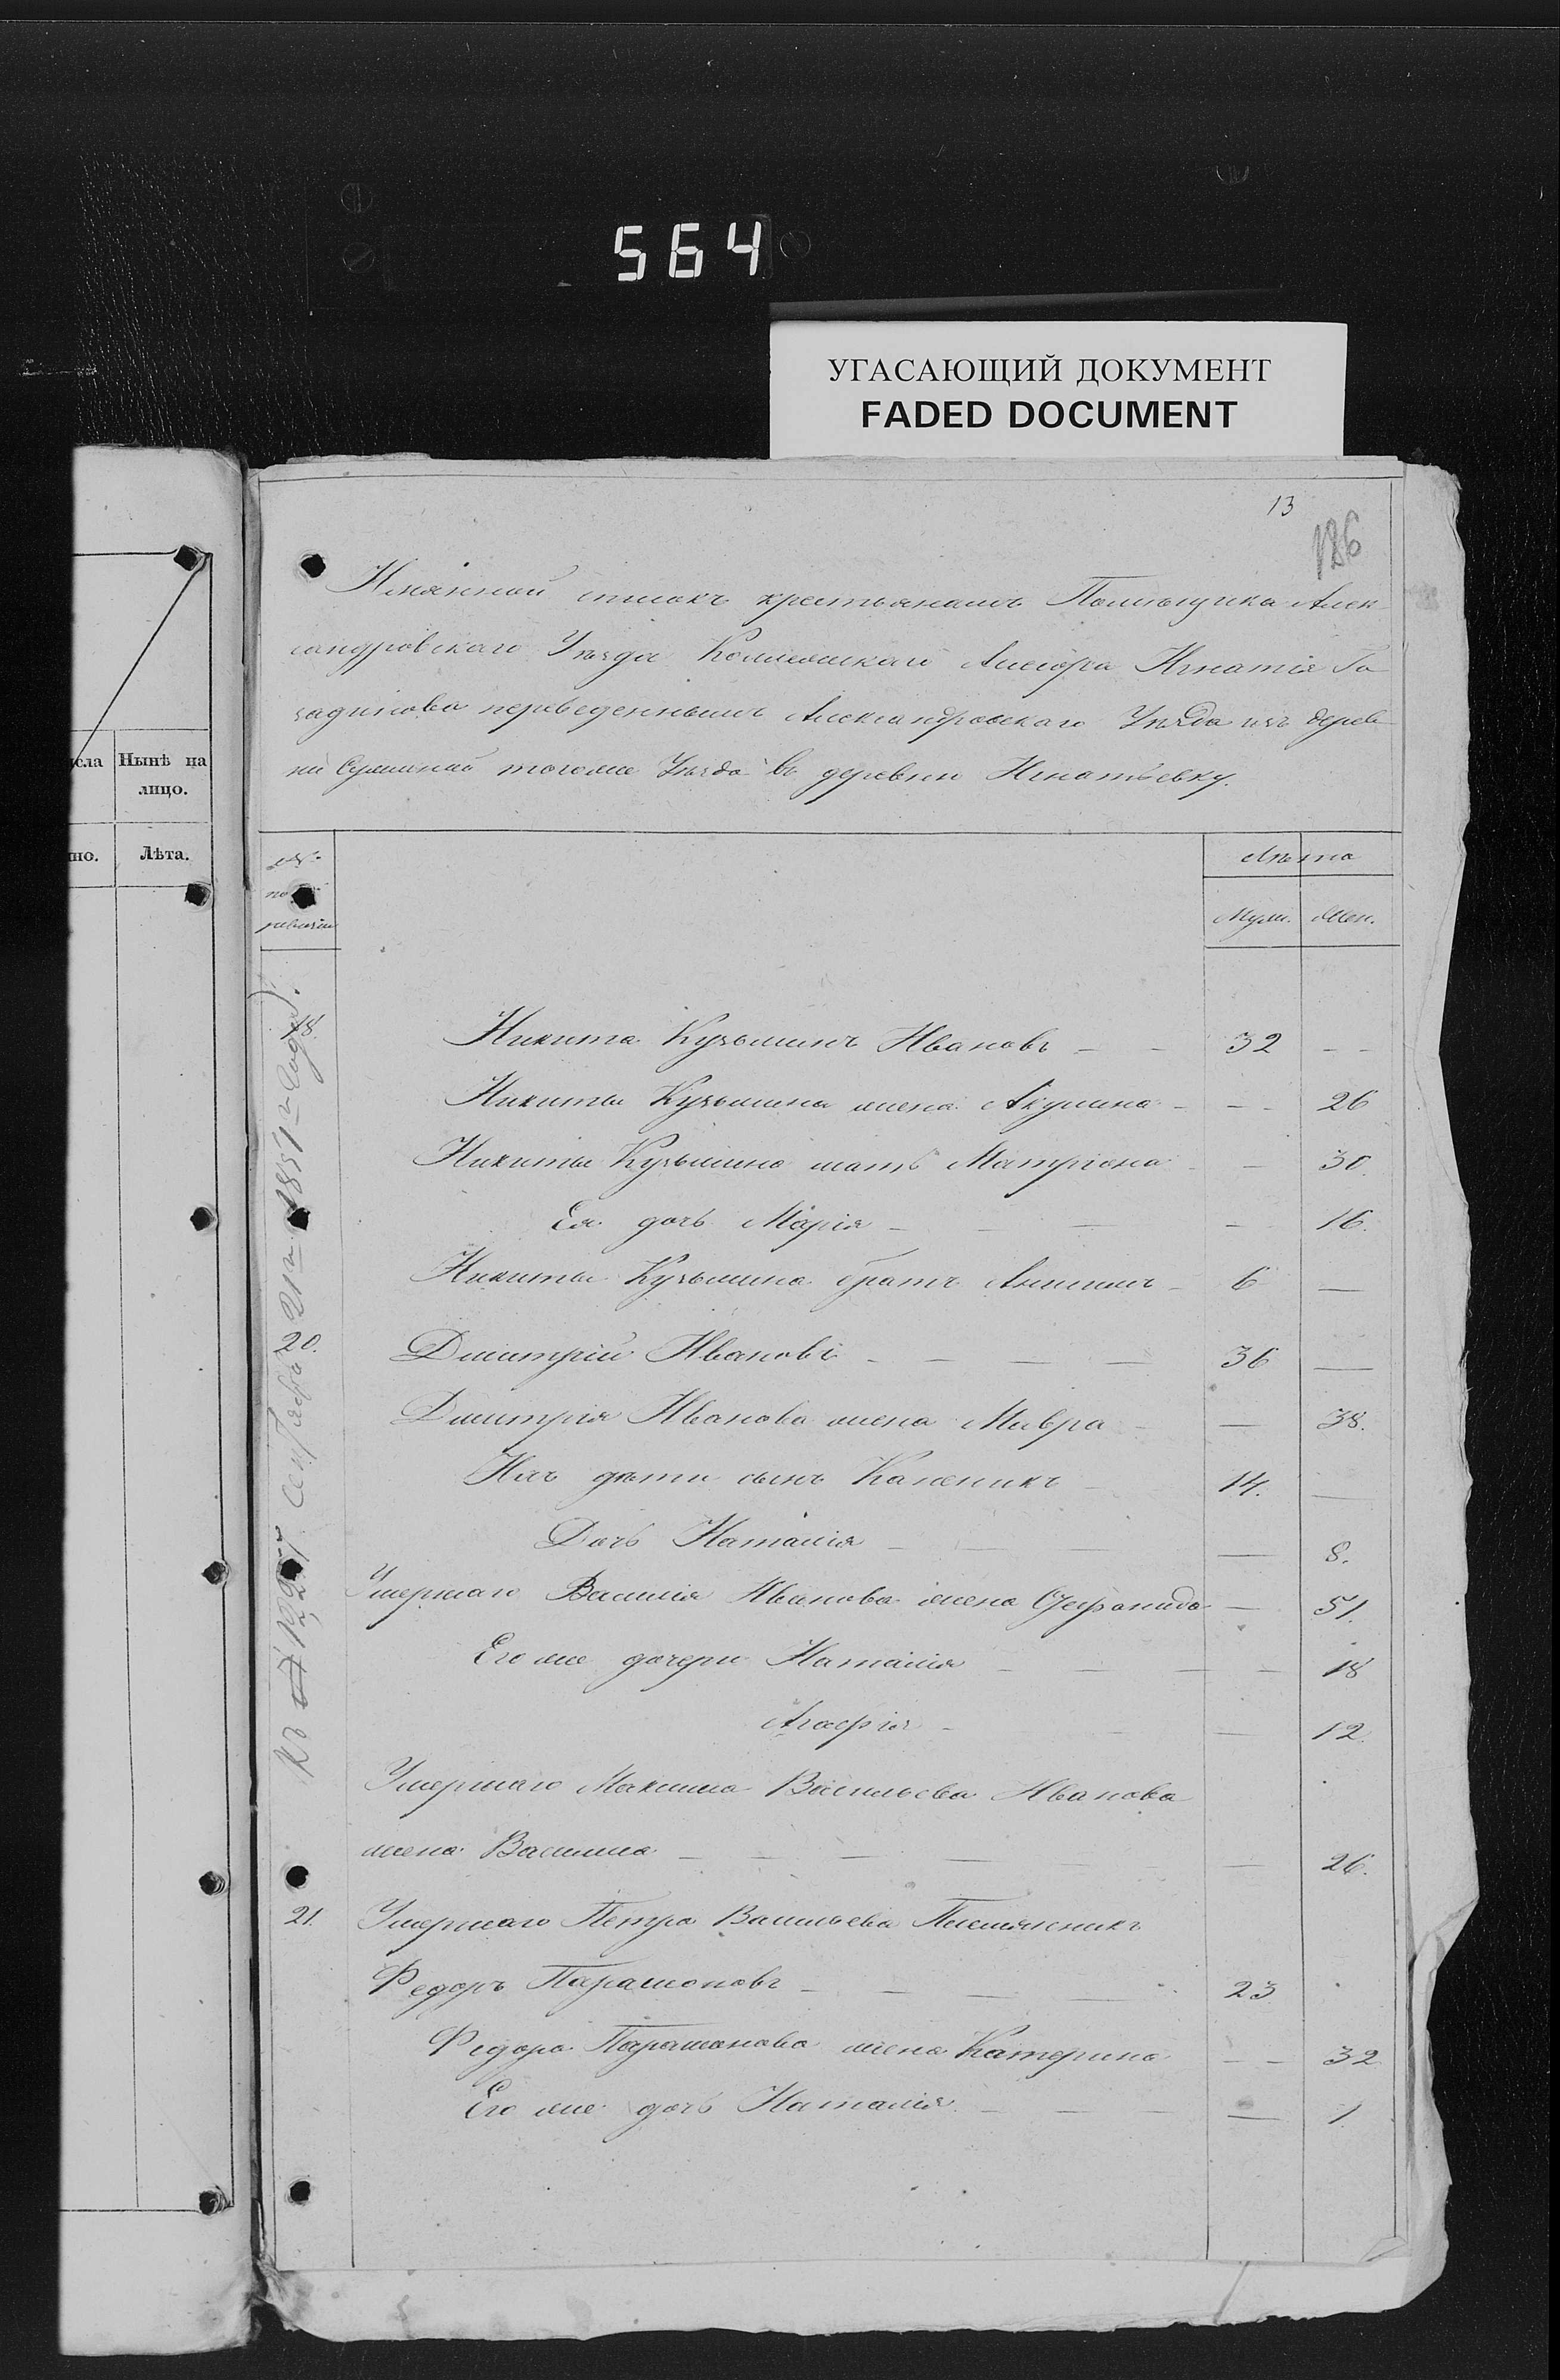 564
УГАСАЮЩИЙ ДОКУМЕНТ
FADED DOCUMENT
13
126
Имянной списокъ крестьянамъ Помѣщика Алек
сандровскаго Уѣзда Коллежскаго Ассесора Игнатія Га
задинова переведеннымъ Александровскаго Уѣзда изъ дерев
ни тогоже Уѣзда въ деревню Игнатьевку.
сла
Нынѣ на
лицо.
но.
Лѣта.
№
по
ревизіи
Лѣта
Муж.
Жен.
Къ № 1227 Сентября 21го 1851го года.
18. Никита Кузьминъ Ивановъ — — 32 — —
Никиты Кузьмина жена Акулина — — — 26
Никиты Кузьмина мать Матрона — 30.
Ея дочь Марія — — — — 16.
Никиты Кузьмина братъ Анисимъ — 6 —
20. Дмитрій Ивановъ — — — — 36 —
Дмитрія Иванова жена Мавра — — 38.
Ихъ дѣти сынъ Каленикъ — 14. —
Дочь Наталія — — — — 8.
Умершаго Василія Иванова жена — 51.
Его же дочери Наталія — — — — 18
Агафія — — — 12.
Умершаго Максима Васильева Иванова
жена Васи­лиса — — — — — 26.
21. Умершаго Петра Васильева Племянникъ
Федоръ Парамоновъ — — — — 23
Федора Парамонова жена Катерина — — 32
Его же дочь Наталія — — — — 1.